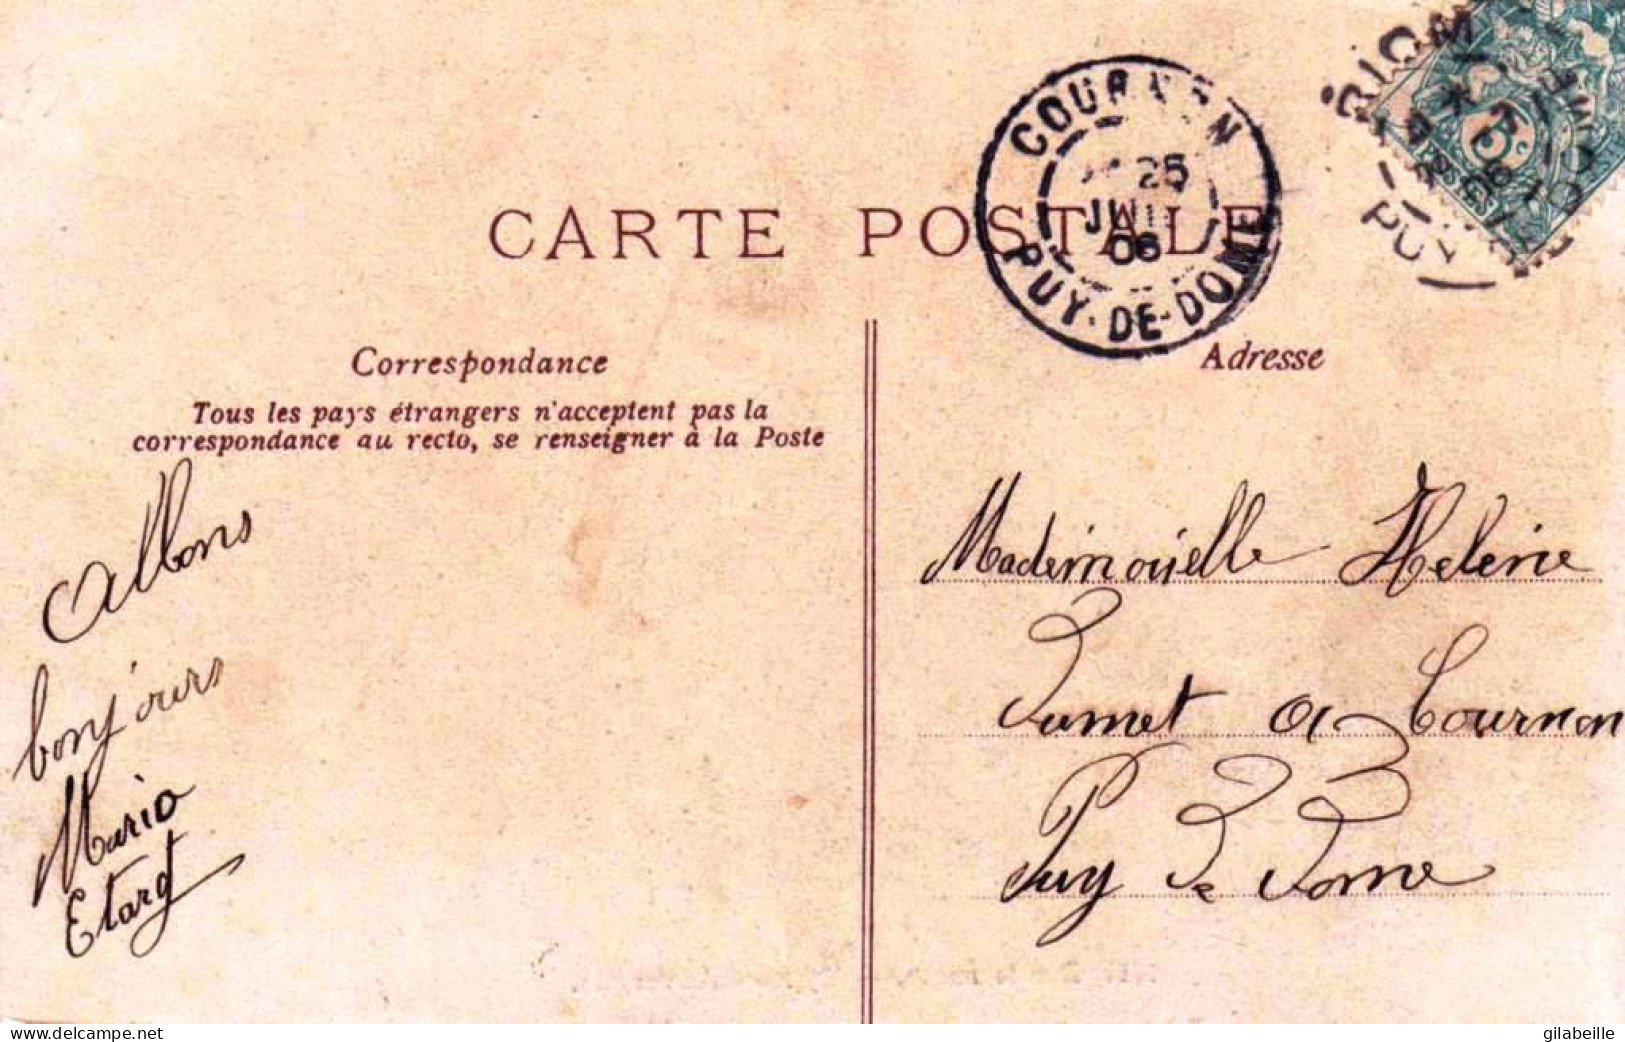 CARTE POSTALE
COURNON
25
JUIL
06
PUY-DE-DOME
RIOM
PUY
5c
Correspondance
Tous les pays étrangers n'acceptent pas la
correspondance au recto, se renseigner à la Poste
Adresse
Allons
bonjours
Maria
Etard
Mademoiselle Helene
a Cournon
Puy De Dome
www.delcampe.net
gilabeille